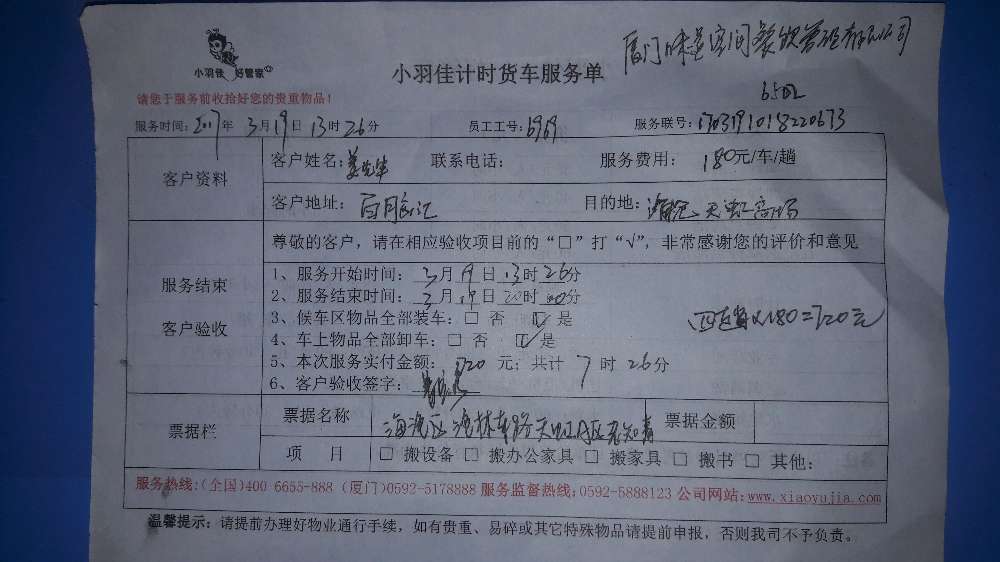 小羽佳 好管家
小羽佳计时货车服务单
请您于服务前收拾好您的贵重物品!
服务时间: 2017年 3月19日13时26分 员工工号: 6969 服务联号: 1703191018220673
客户资料
客户姓名: 姜先生 联系电话: 服务费用: 180元/车/趟
客户地址: 目的地: 天虹商场
尊敬的客户，请在相应验收项目前的“□”打“√”，非常感谢您的评价和意见
服务结束
客户验收
1、服务开始时间: 3月19日13时26分
2、服务结束时间: 3月19日20时00分
3、候车区物品全部装车: □ 否 ☑ 是
4、车上物品全部卸车: □ 否 ☑ 是
四趟X180=720元
5、本次服务实付金额: 720 元; 共计 7 时 26分
6、客户验收签字:
票据栏
票据名称 票据金额
项 目 □ 搬设备 □ 搬办公家具 □ 搬家具 □ 搬书 □ 其他:
服务热线:(全国)400 6655-888 (厦门)0592-5178888 服务监督热线:0592-5888123 公司网站:www.xiaoyujia.com
温馨提示: 请提前办理好物业通行手续，如有贵重、易碎或其它特殊物品请提前申报，否则我司不予负责。